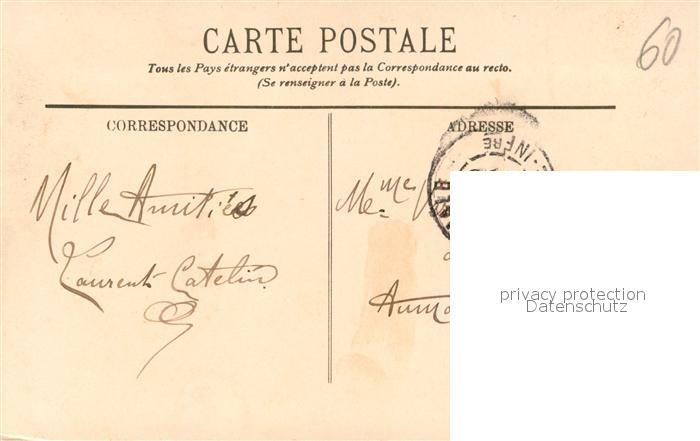 CARTE POSTALE
Tous les Pays étrangers n'acceptent pas la Correspondance au recto.
(Se renseigner à la Poste).
60
CORRESPONDANCE
ADRESSE
INFRE
Mille Amitiés
Laurent Catelin
Me
privacy protection
Datenschutz